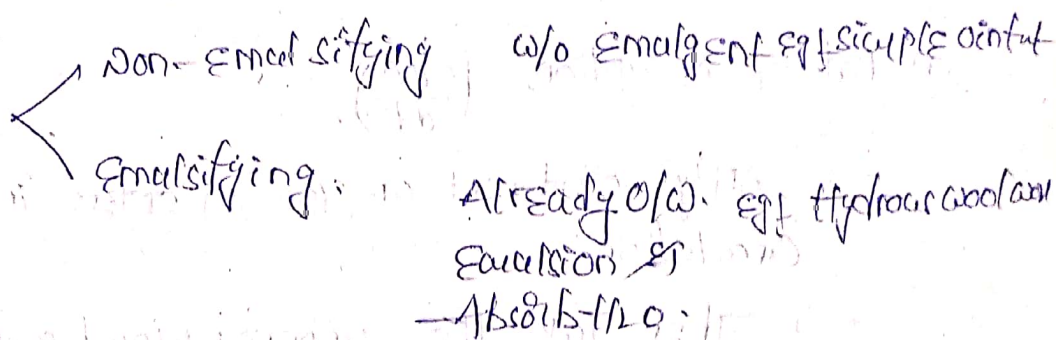 Non-Emulsifying w/o Emulgent Eg: Simple Ointmt
Emulsifying. Already O/W. Eg: Hydrous wool wax
Emulsion &
-Absorb H2O.